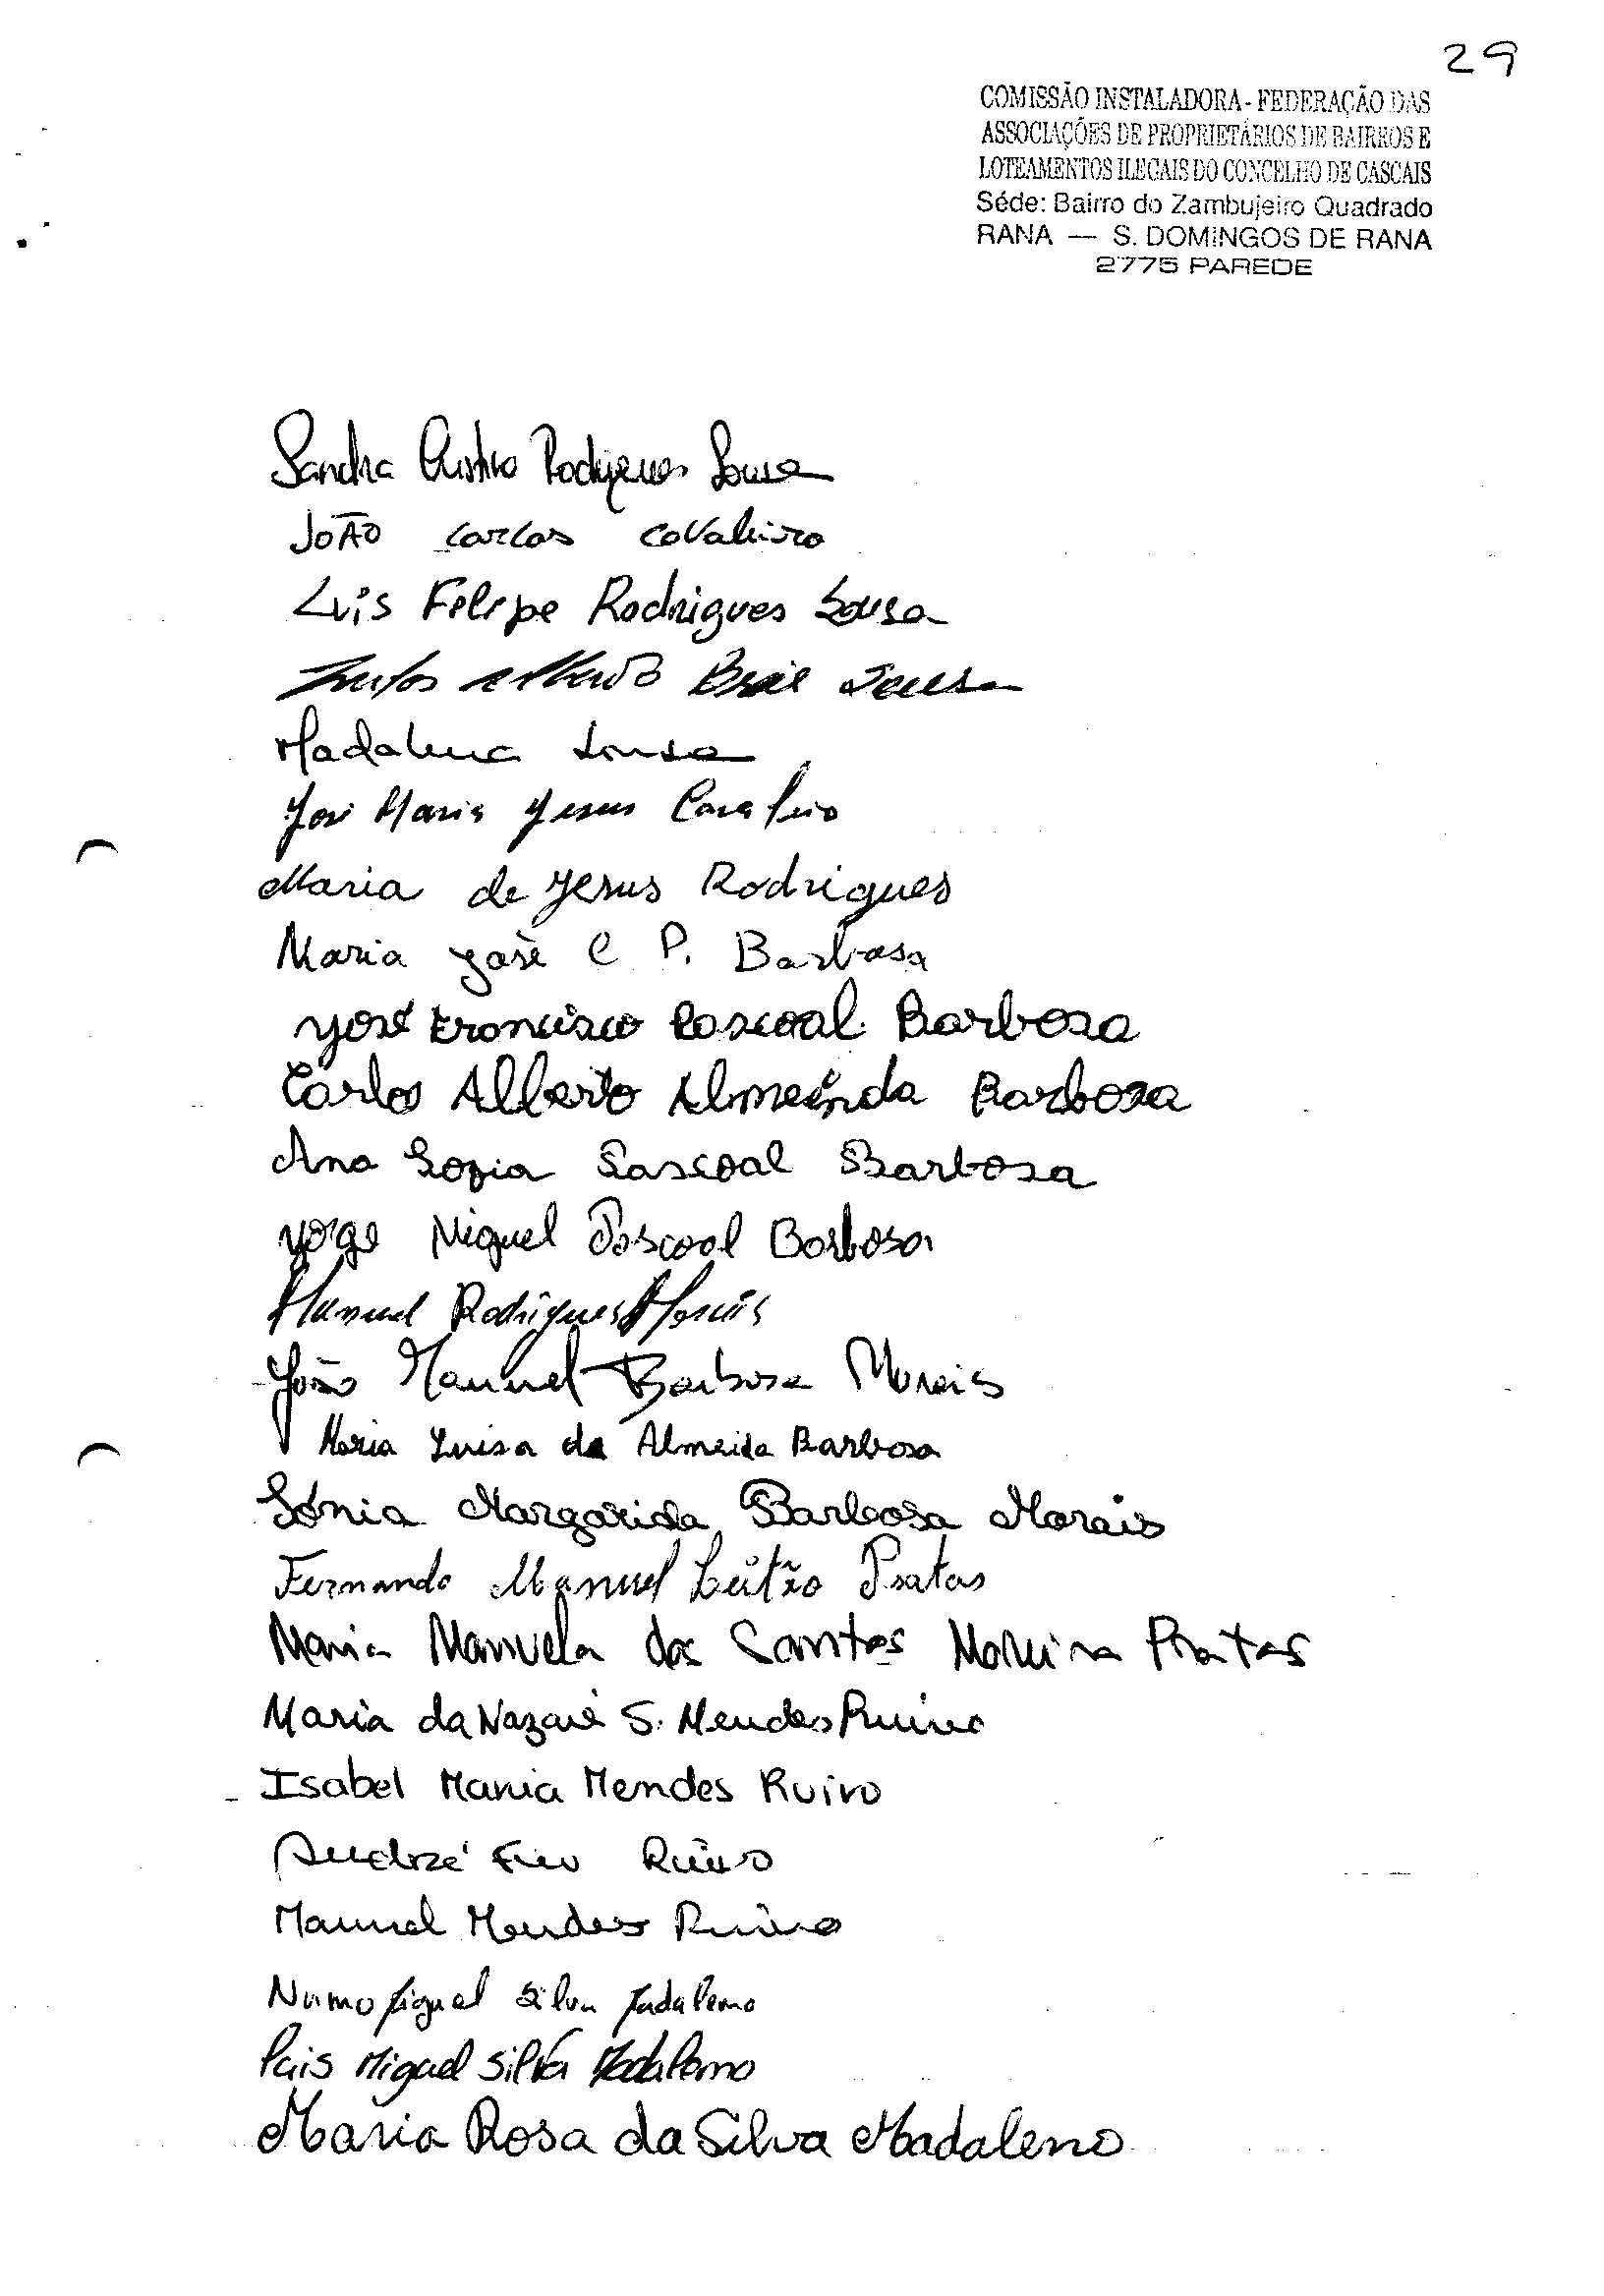 29
COMISSÃO INSTALADORA - FEDERAÇÃO DAS
ASSOCIAÇÕES DE PROPRIETÁRIOS DE BAIRROS E
LOTEAMENTOS ILEGAIS DO CONCELHO DE CASCAIS
Séde: Bairro do Zambujeiro Quadrado
RANA — S. DOMINGOS DE RANA
2775 PAREDE
Sandra Cristina Rodrigues Sousa
João Carlos Cavaleiro
Luis Felipe Rodrigues Sousa
Sousa
Madalena Sousa
José Maria Jesus Cavaleiro
Maria de Jesus Rodrigues
Maria José C P. Barbosa
José Francisco Pascoal Barbosa
Carlos Alberto Almeida Barbosa
Ana Sofia Pascoal Barbosa
Jorge Miguel Pascoal Barbosa
Manuel Rodrigues Morais
João Manuel Barbosa Morais
Maria Luisa de Almeida Barbosa
Sónia Margarida Barbosa Morais
Fernando Manuel Leitão Pratas
Maria Manuela dos Santos Moreira Pratas
Maria da Nazaré S. Mendes Ruivo
Isabel Maria Mendes Ruivo
André Ruivo
Manuel Mendes Ruivo
Nuno Miguel Silva Madaleno
Luis Miguel Silva Madaleno
Maria Rosa da Silva Madaleno